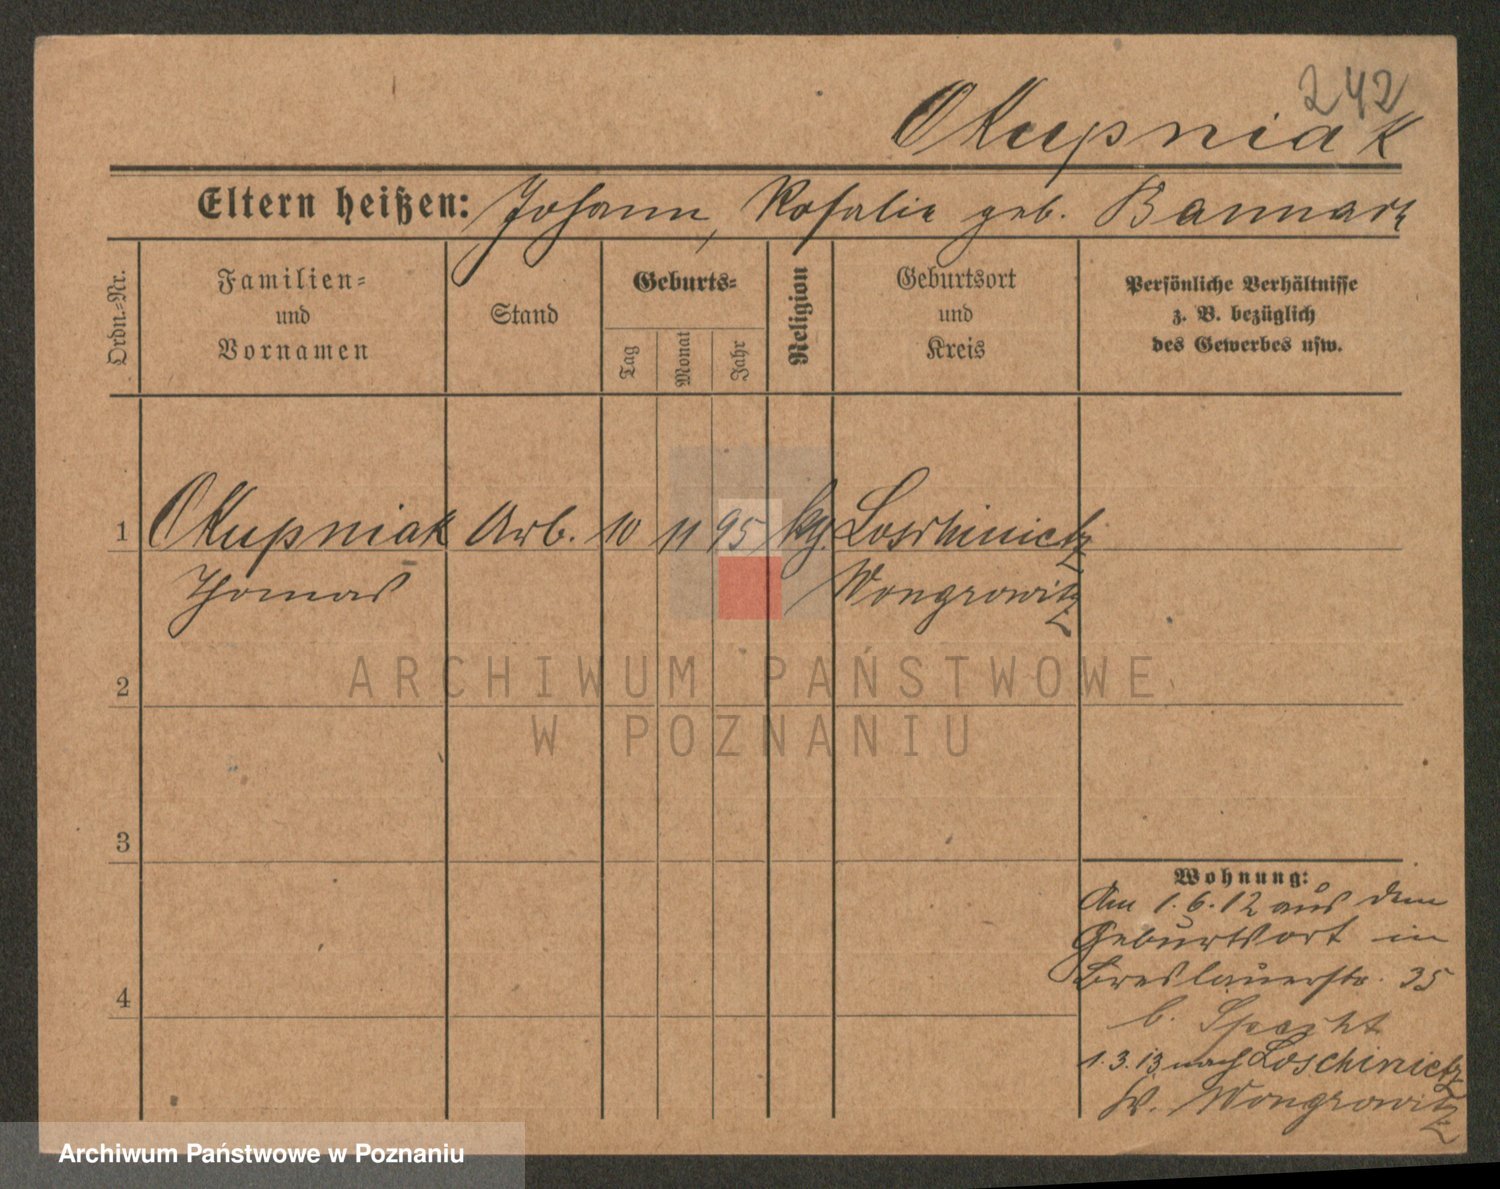 242
Okupniak
Eltern heißen: Johann, Rosalie geb. Bannach
Ordn.-Nr.
Familien-
und
Vornamen
Stand
Geburts-
Tag
Monat
Jahr
Religion
Geburtsort
und
Kreis
Persönliche Verhältnisse
z. B. bezüglich
des Gewerbes usw.
1 Okupniak Arb. 10 11 95 kg. Loschinietz
Thomas Wongrowitz
2
3
4
Wohnung:
Am 1.6.12 aus dem
Geburtsort in
Breslauerstr. 35
b. Specht
1.3.13 nach Loschinietz
Kr. Wongrowitz
ARCHIWUM PAŃSTWOWE
W POZNANIU
Archiwum Państwowe w Poznaniu